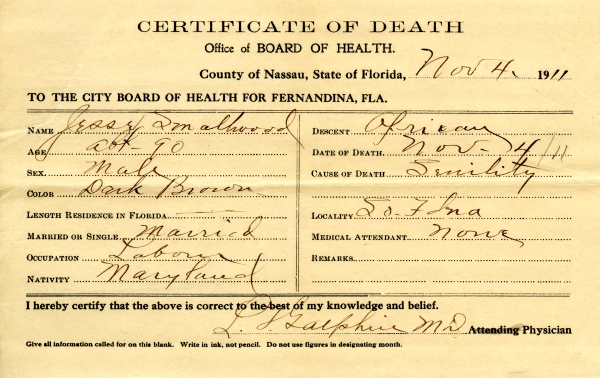 CERTIFICATE OF DEATH
Office of BOARD OF HEALTH.
County of Nassau, State of Florida, Nov 4. 1911
TO THE CITY BOARD OF HEALTH FOR FERNANDINA, FLA.
NAME Jessy Smallwood
AGE abt 90
SEX. Male
COLOR Dark Brown
LENGTH RESIDENCE IN FLORIDA
MARRIED OR SINGLE Married
OCCUPATION Labour
NATIVITY Maryland
DESCENT African
DATE OF DEATH. Nov- 4/11
CAUSE OF DEATH Senility
LOCALITY So. F Dna
MEDICAL ATTENDANT None
REMARKS
I hereby certify that the above is correct to the best of my knowledge and belief.
L. Galphin MD Attending Physician
Give all information called for on this blank. Write in ink, not pencil. Do not use figures in designating month.